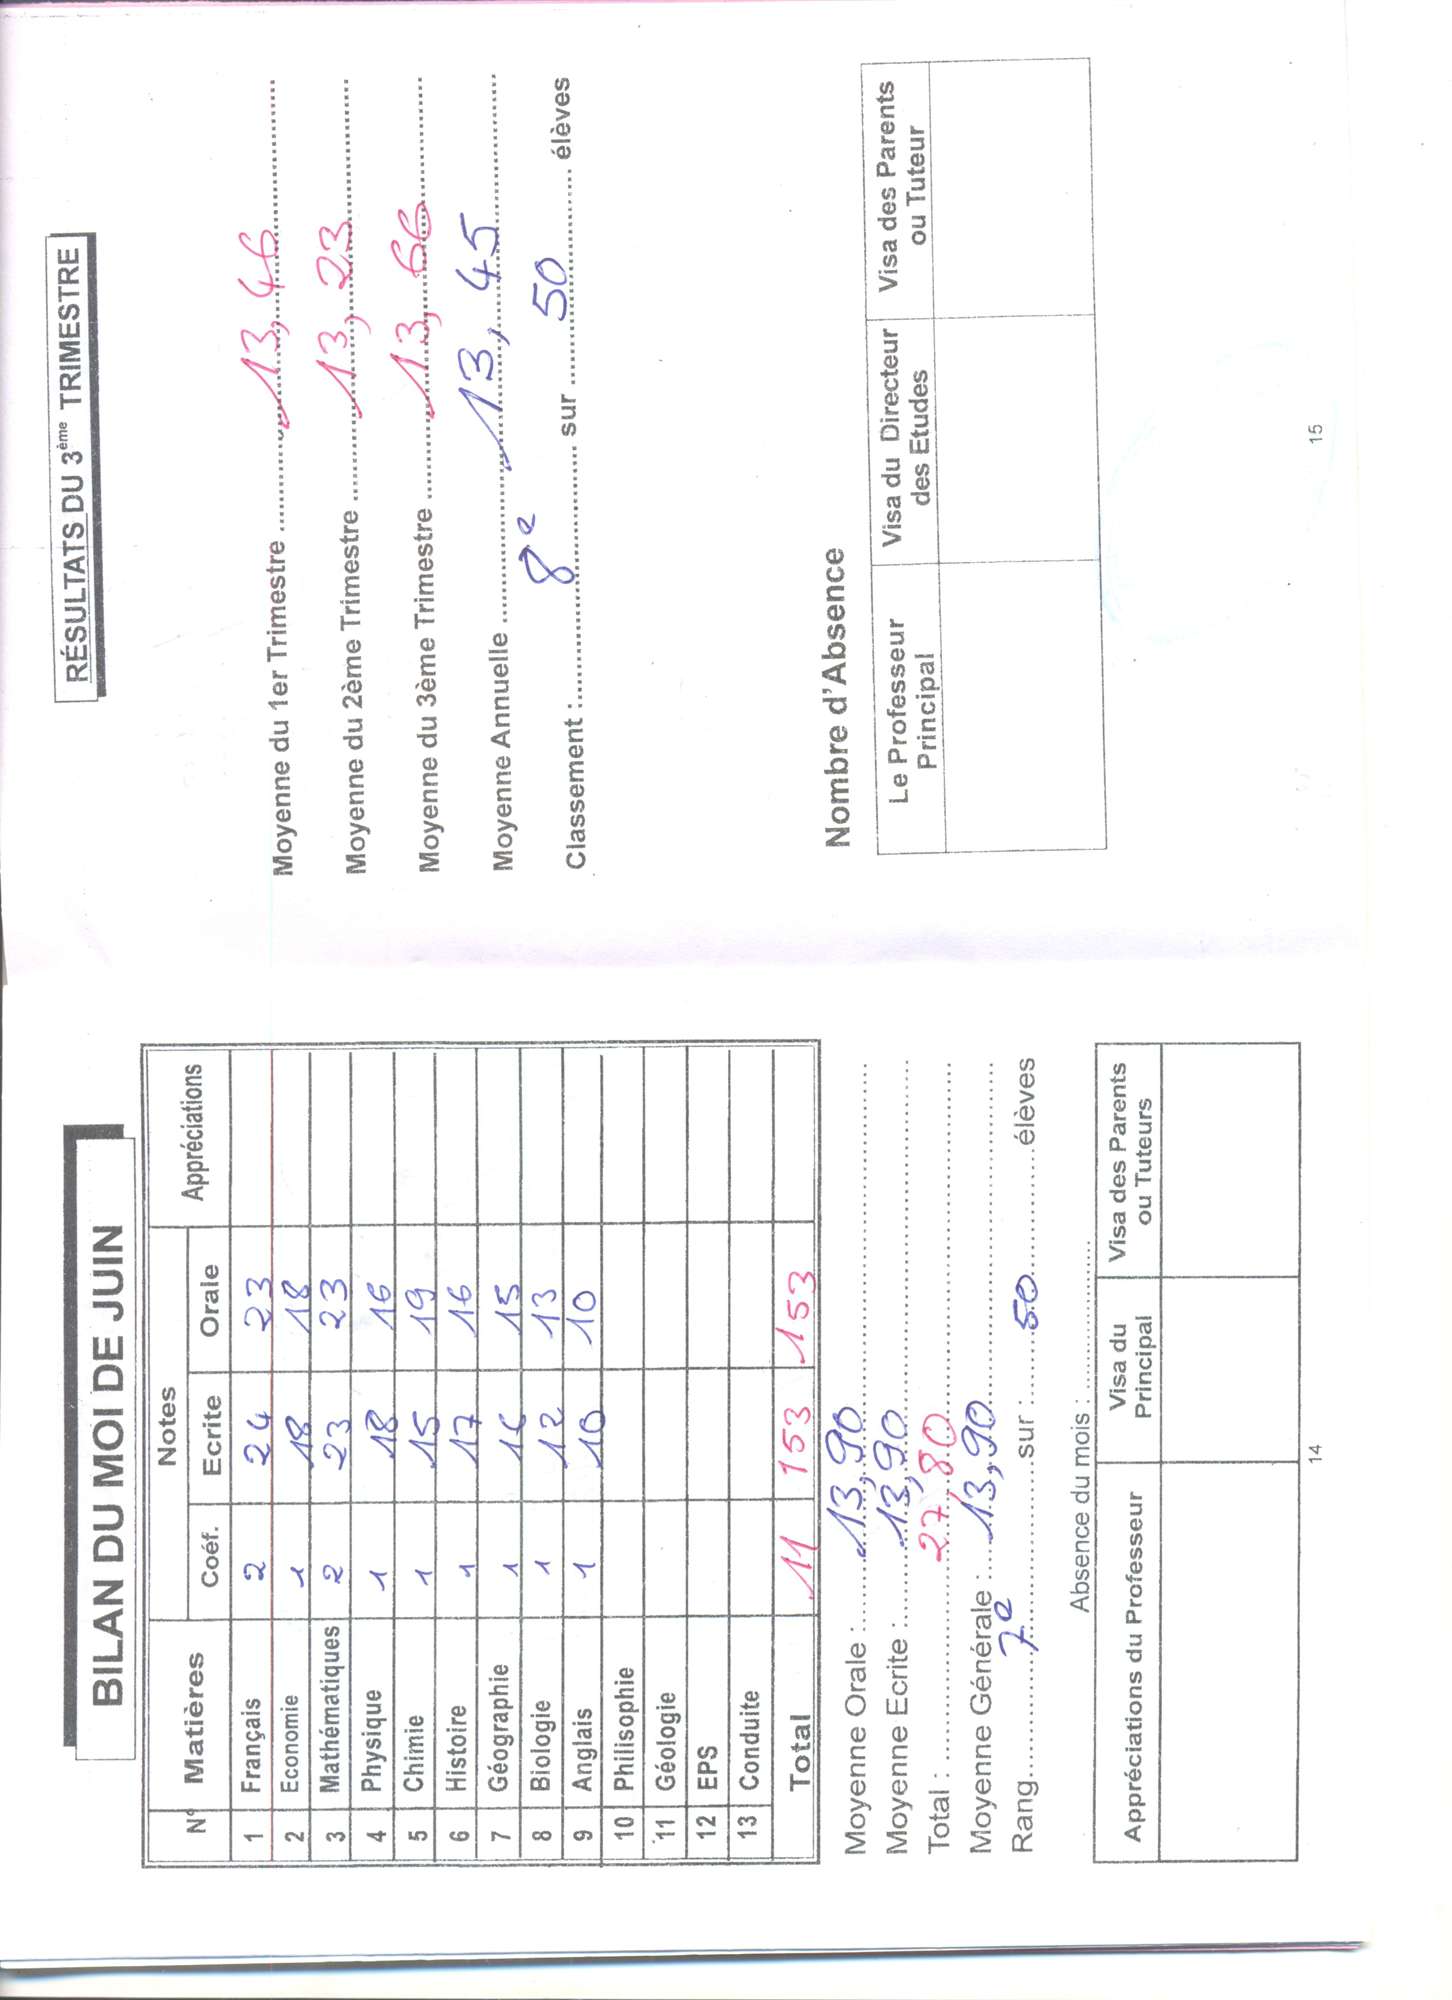 BILAN DU MOI DE JUIN
N° Matières Notes Appréciations
Coéf. Ecrite Orale
1 Français 2 24 23
2 Economie 1 18 18
3 Mathématiques 2 23 23
4 Physique 1 18 16
5 Chimie 1 15 19
6 Histoire 1 17 16
7 Géographie 1 16 15
8 Biologie 1 12 13
9 Anglais 1 10 10
10 Philisophie
11 Géologie
12 EPS
13 Conduite
Total 11 153 153
Moyenne Orale : 13,90
Moyenne Ecrite : 13,90
Total : 27,80
Moyenne Générale : 13,90
Rang 7e sur : 50 élèves
Absence du mois :
Appréciations du Professeur Visa du Principal Visa des Parents ou Tuteurs
14
RÉSULTATS DU 3ème TRIMESTRE
Moyenne du 1er Trimestre 13,46
Moyenne du 2ème Trimestre 13,23
Moyenne du 3ème Trimestre 13,66
Moyenne Annuelle 13,45
Classement : 8e sur 50 élèves
Nombre d'Absence
Le Professeur Principal Visa du Directeur des Etudes Visa des Parents ou Tuteur
15